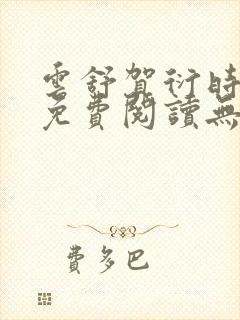 雲舒賀衍時
免費閱讀無
費多巴